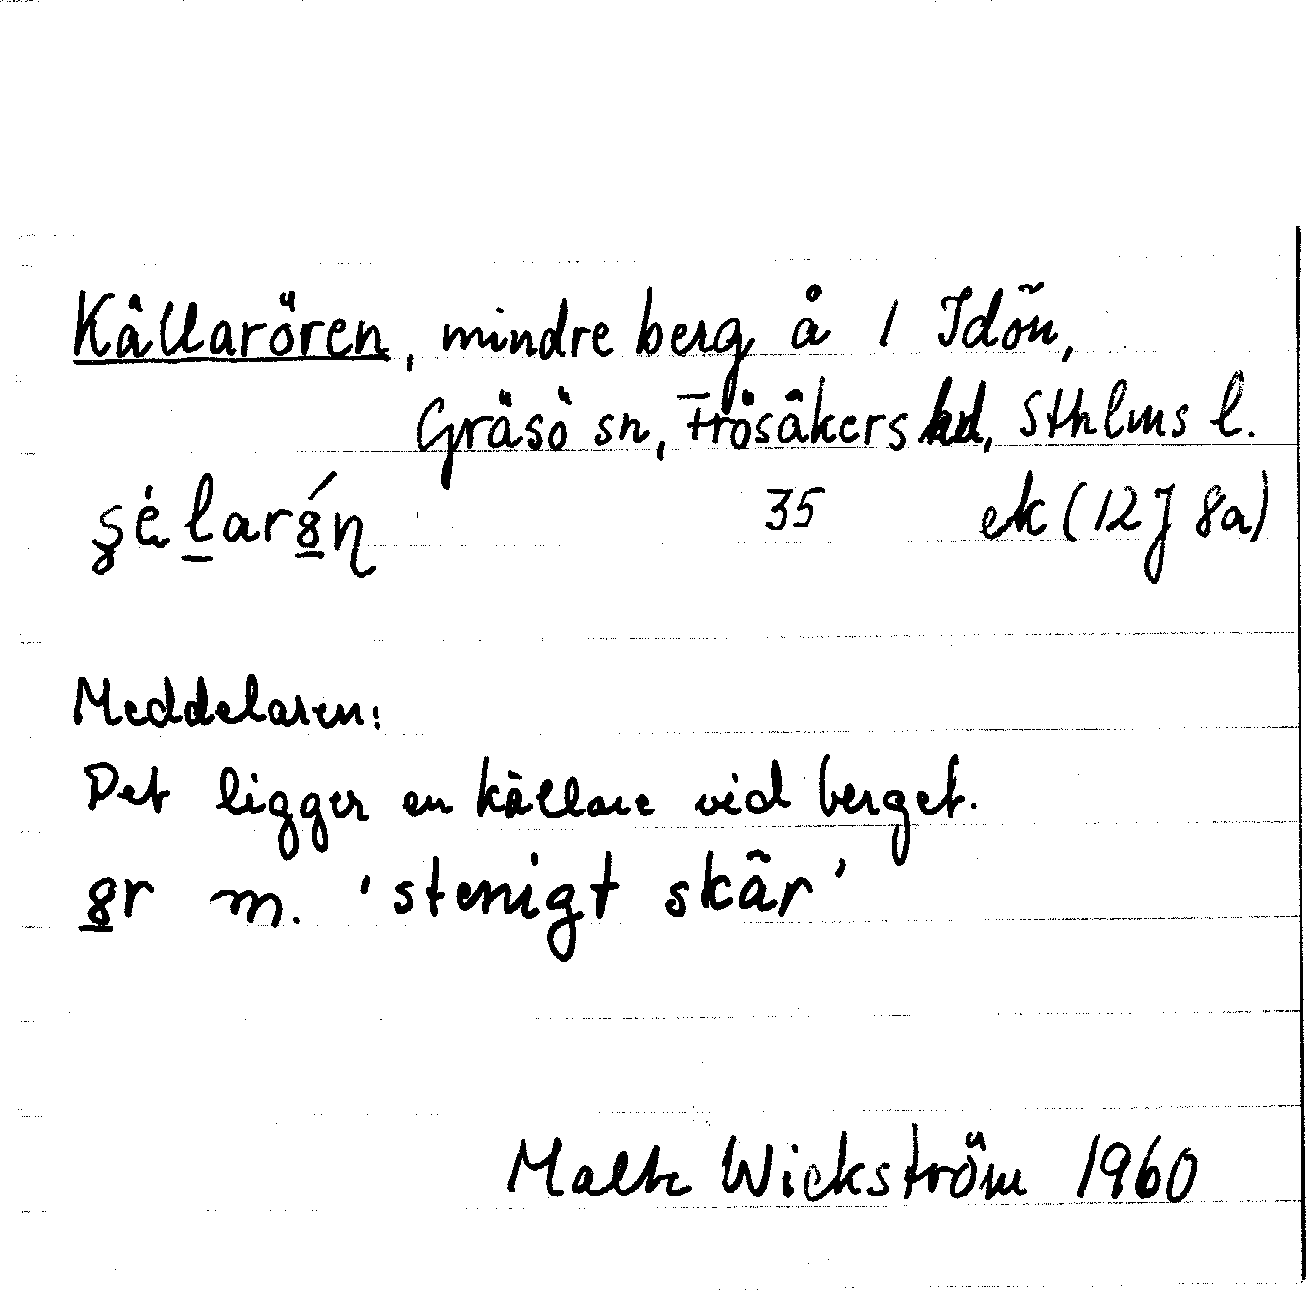 Källarören, mindre berg å 1 Idön,
Gräsö sn, Frösåkers hd, Sthlms l.
35 ek (12J 8a)
Meddelaren:
Det ligger en källare vid berget.
m. 'stenigt skär'
Malte Wickström 1960